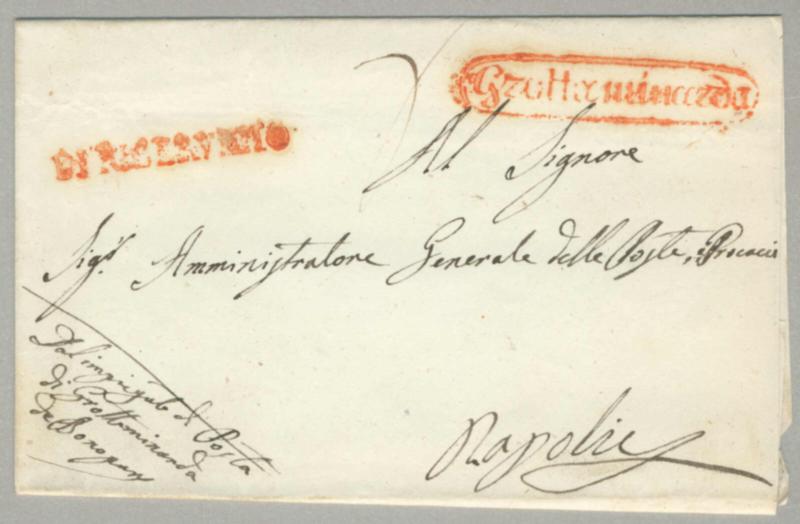 Grottaminarda
DI RISERVATO
Al Signore
Sig.r Amministratore Generale delle Poste, e Procacci
Dal impiegato di Posta
di Grottaminarda
Napoli